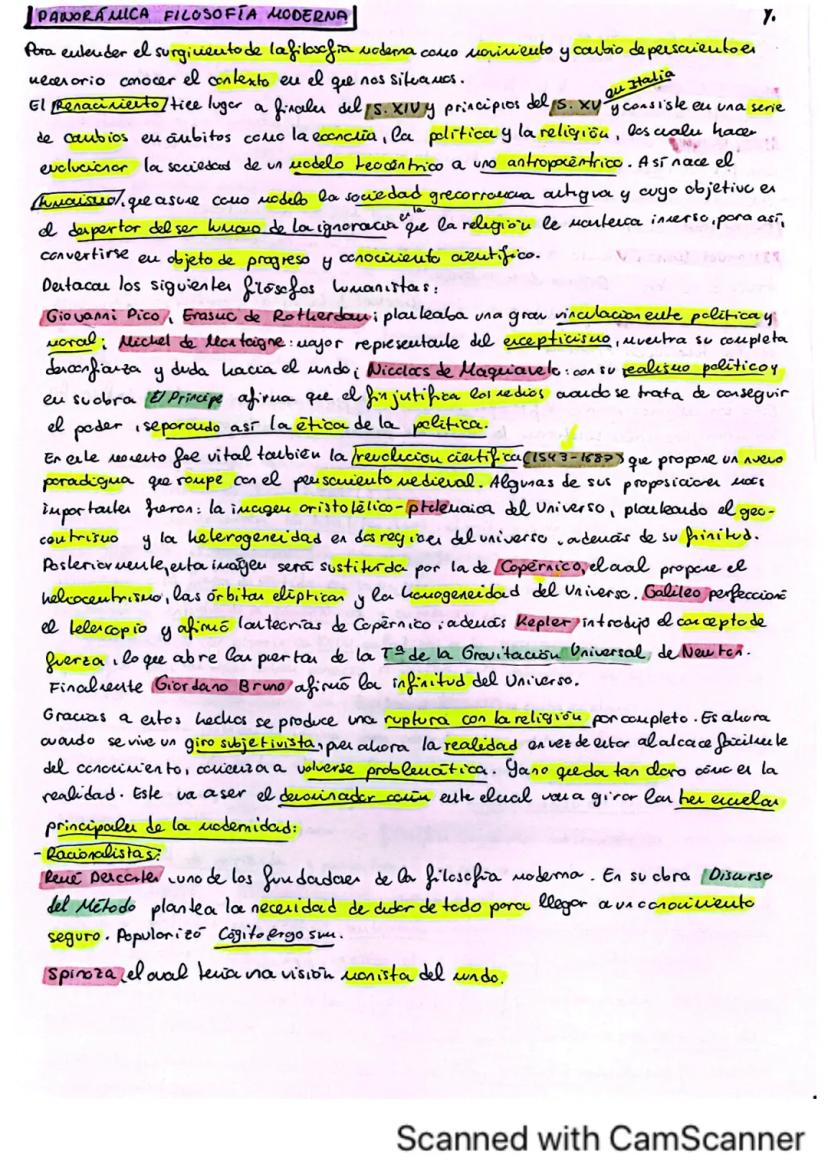 PANORÁMICA FILOSOFÍA MODERNA
Y.
Para entender el surgimiento de la filosofía moderna como movimiento y cambio de pensamiento es
necesario conocer el contexto en el que nos situamos.
en Italia
El Renacimiento tiee lugar a finales del S. XIV y principios del S. XV y consiste en una serie
de cambios en ámbitos como la economía, la política y la religión, los cuales hacen
evolucionar la sociedad de un modelo teocéntrico a uno antropocéntrico. Así nace el
humanismo, que asume como modelo la sociedad grecorromana antigua y cuyo objetivo es
el despertar del ser humano de la ignorancia en la que la religión le mantenía inverso, para así,
convertirse en objeto de progreso y conocimiento científico.
Destacan los siguientes filósofos humanistas:
Giovanni Pico, Erasmo de Rotherdam; planteaba una gran vinculación ente política y
moral; Michel de Montaigne: mayor representante del escepticismo, muestra su completa
desconfianza y duda hacia el mundo; Nicolaos de Maquiavelo: con su realismo político y
en su obra El Príncipe afirma que el fin justifica los medios cuando se trata de conseguir
el poder, separando así la ética de la política.
En este momento fue vital también la revolución científica (1543-1687) que propone un nuevo
paradigma que rompe con el pensamiento medieval. Algunas de sus proposiciones más
importantes fueron: la imagen aristotélico-ptolemaica del Universo, planteando el geo-
centrismo y la heterogeneidad en dos regiones del universo, además de su finitud.
Posteriormente, esta imagen será sustituida por la de Copérnico, el cual propone el
heliocentrismo, las órbitas elípticas y la homogeneidad del Universo. Galileo perfeccionó
el telescopio y afirmó las teorías de Copérnico; además Kepler introdujo el concepto de
fuerza, lo que abre las puertas de la Tª de la Gravitación Universal de Newton.
Finalmente Giordano Bruno afirmó la infinitud del Universo.
Gracias a estos hechos se produce una ruptura con la religión por completo. Es ahora
cuando se vive un giro subjetivista, pues ahora la realidad en vez de estar al alcance fácilmente
del conocimiento, comienza a volverse problemática. Ya no queda tan claro cómo es la
realidad. Este va a ser el denominador común ente el cual van a girar las tres escuelas
principales de la modernidad:
- Racionalistas:
René Descartes, uno de los fundadores de la filosofía moderna. En su obra Discurso
del Método plantea la necesidad de dudar de todo para llegar a un conocimiento
seguro. Popularizó Cogito ergo sum.
Spinoza, el cual tenía una visión monista del mundo.
Scanned with CamScanner